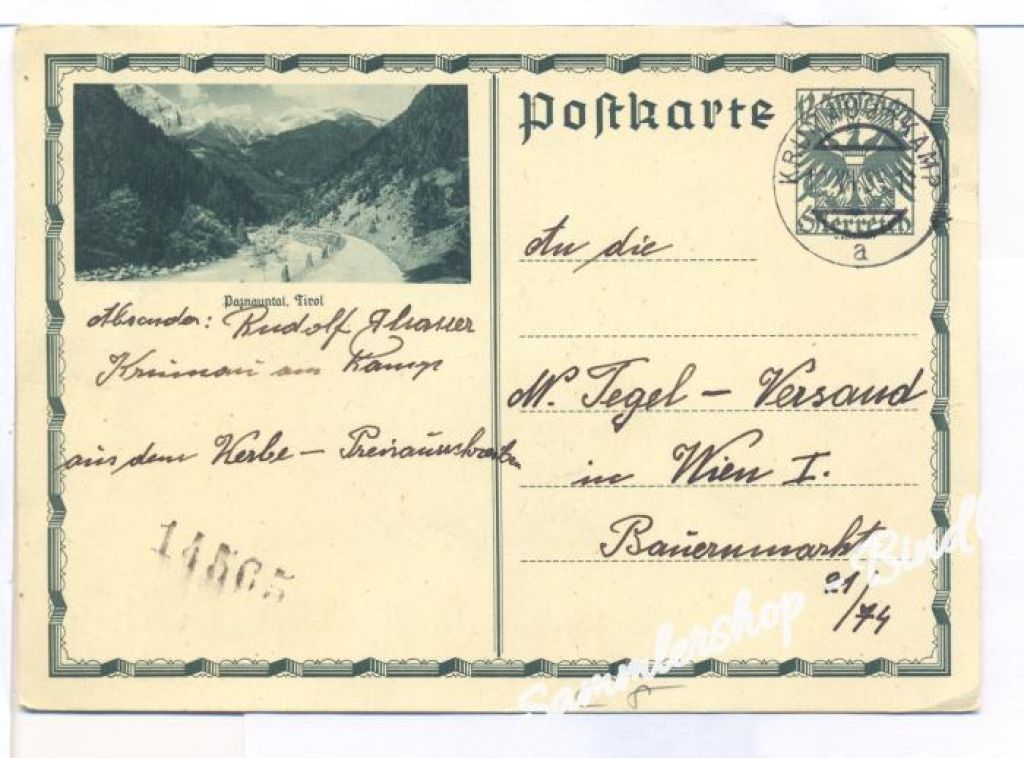 Postkarte
12
KRUMAU AM KAMP
a
Österreich
Paznauntal, Tirol
Absender: Rudolf
Krumau am Kamp
aus dem Werbe – Preisausschreiben
14565
An die
M. Tegel – Versand
in Wien I.
Bauernmarkt
21/
/74
Sammlershop Bindl